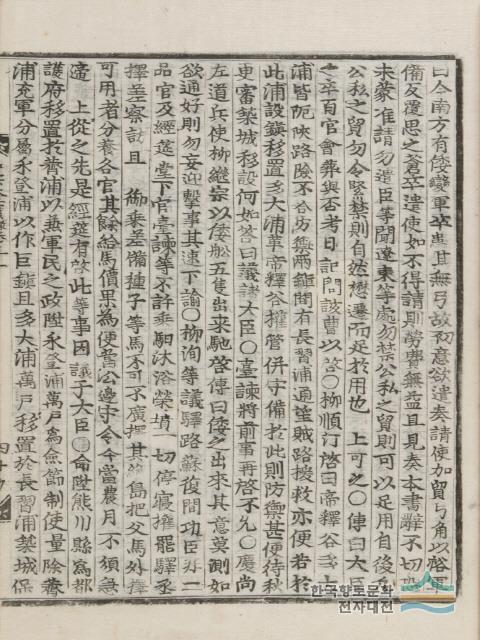 曰今南方有倭變軍卒患其無弓故初意欲遣奏請使加貿弓角以裕軍
備反覆思之蒼卒遣使如不得請則勞費無益且見奏本書辭不切
未蒙准請勿遣臣等聞遼東等處勿禁公私之貿則可以足用自後
公私之貿勿令緊禁則自然懋遷而足於用也 上可之○傳曰大臣
之卒百官會葬與否考日記問該曹以啓○柳順汀啓曰帝釋谷多大
浦皆阨陜路險不合防禦兩鎭間有長習浦通望賊路援救亦便若於
此浦設鎭移置多大浦萬戶帝釋谷權管併守備於此則防禦甚便待秋
更審築城移設何如答曰議諸大臣○臺諫將前事再啓不允○慶尙
左道兵使柳繼宗以倭船五隻出來馳啓傳曰倭之出來其意莫測如
欲通好則勿妄迎擊事其速下諭○柳洵等議驛路蘇復間功臣外二
品官及經筵堂下官臺諫等不許乘馹沐浴榮墳一切停寢權罷驛丞
擇差察訪且 御乘差備種子等馬不可不廣擇其 島把父馬外擇
可用者分養各官其餘給馬價果爲便當公邊守令今當農月不須急
適 上從之先是經筵有啓此等事因議于大臣○命陞熊川縣爲都
護府移置於薺浦以兼軍民之政陞永登浦萬戶爲僉節制使量除薺
浦充軍分屬永登浦以作巨鎭且多大浦萬戶移置於長習浦築城保
四十九
한국향토문화
전자대전